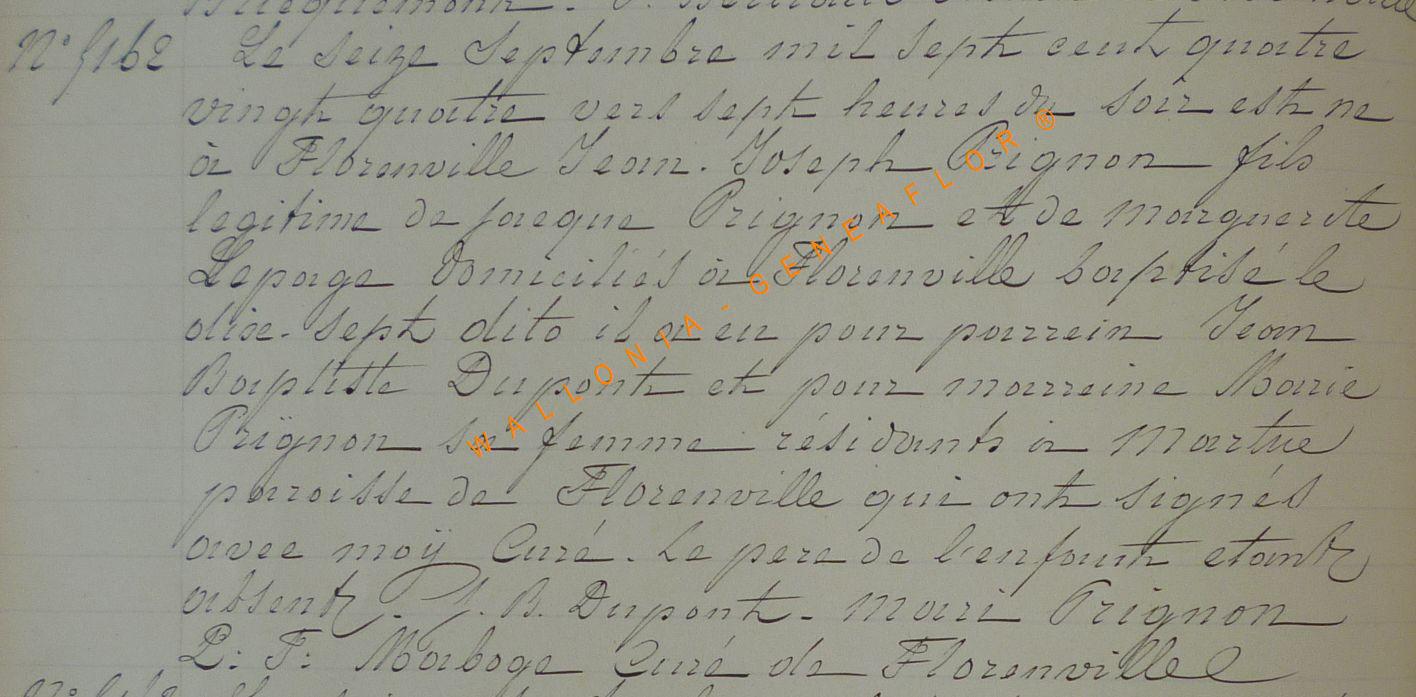 N° 5162 Le seize Septembre mil sept cent quatre
vingt quatre vers sept heures du soir est ne
à Florenville Jean-Joseph Prignon fils
legitime de jacque Prignon et de Marguerite
Lepage domiciliés à Florenville baptisé le
dix-sept dito il a eu pour parrein Jean
Baptiste Dupont et pour marreine Marie
Prignon sa femme résidants à Martue
paroisse de Florenville qui ont signés
avec moÿ Curé. Le pere de l'enfant etant
absent. J. B. Dupont - Mari Prignon
P: F: Maboge Curé de Florenville
WALLONIA - GENEAFLOR ®